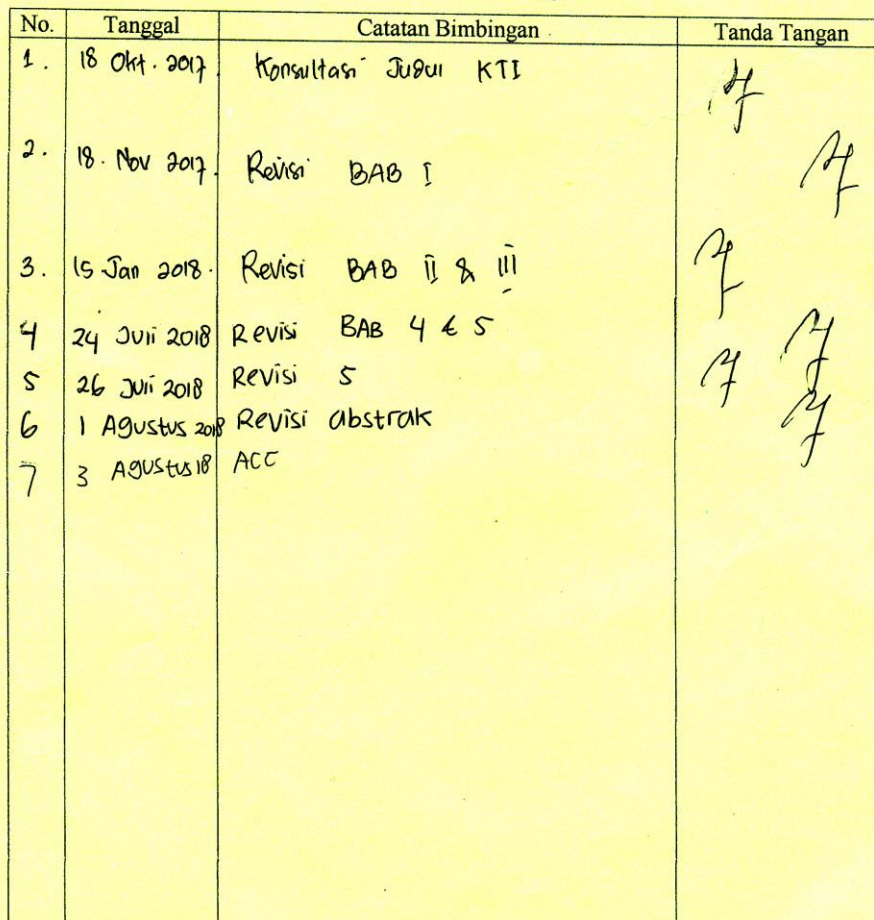 No. Tanggal Catatan Bimbingan Tanda Tangan
1. 18 Okt. 2017. Konsultasi Judul KTI
2. 18. Nov 2017. Revisi BAB I
3. 15 Jan 2018. Revisi BAB II & III
4 24 Juli 2018 Revisi BAB 4 & 5
5 26 Juli 2018 Revisi 5
6 1 Agustus 2018 Revisi abstrak
7 3 Agustus 18 ACC